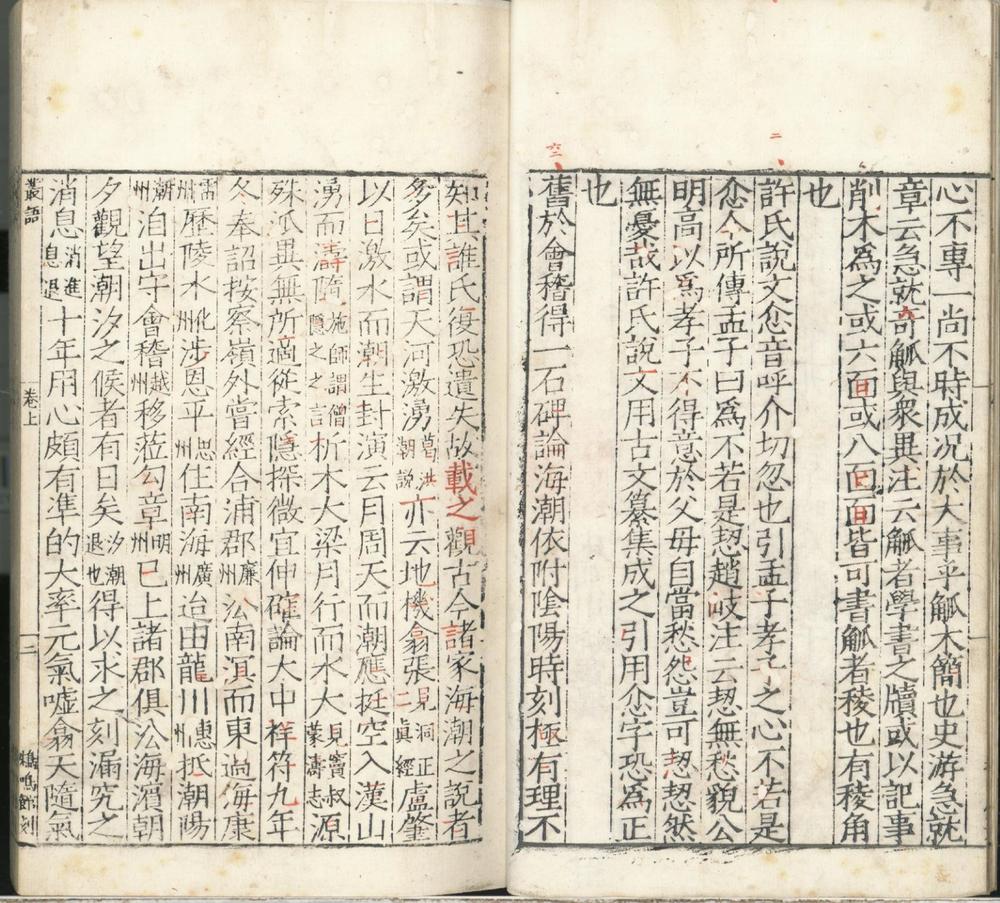 心不專一尚不時成况於大事乎觚木簡也史游急就
章云急就奇觚與衆異注云觚者學書之牘或以記事
削木爲之或六面或八面面皆可書觚者稜也有稜角
也
許氏說文忿音呼介切忽也引孟子孝子之心不若是
忿今所傳孟子曰爲不若是恝趙岐注云恝無愁貌公
明高以爲孝子不得意於父母自當愁怨豈可恝恝然
無憂哉許氏說文用古文纂集成之引用忿字恐爲正
也
舊於會稽得一石碑論海潮依附陰陽時刻極有理不
知其誰氏復恐遺失故載之觀古今諸家海潮之說者
多矣或謂天河激湧葛洪潮說亦云地機翕張見洞正二眞經盧肇
以日激水而潮生封演云月周天而潮應挺空入漢山
湧而濤隨施師謂僧隱之之言析木大梁月行而水大見竇叔蒙濤志源
殊派異無所適從索隱探微宜伸確論大中祥符九年
冬奉詔按察嶺外嘗經合浦郡廉州沿南溟而東過海康
雷州歷陵水化州涉恩平恩州住南海廣州迨由龍川惠州抵潮陽
潮州洎出守會稽越州移蒞勾章明州已上諸郡俱沿海濱朝
夕觀望潮汐之候者有日矣汐潮退也得以求之刻漏究之
消息消進息退十年用心頗有準的大率元氣噓翕天隨氣
叢語
卷上
二
鴂鳴館刻
二
六二